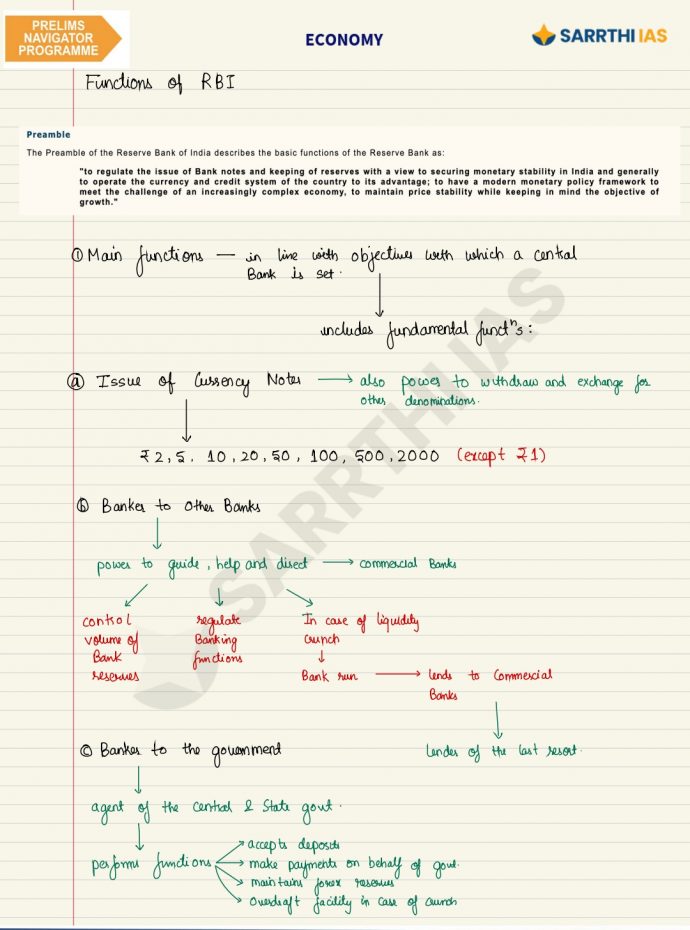 PRELIMS
NAVIGATOR
PROGRAMME
ECONOMY
SARRTHI IAS
Functions of RBI
Preamble
The Preamble of the Reserve Bank of India describes the basic functions of the Reserve Bank as:
"to regulate the issue of Bank notes and keeping of reserves with a view to securing monetary stability in India and generally
to operate the currency and credit system of the country to its advantage; to have a modern monetary policy framework to
meet the challenge of an increasingly complex economy, to maintain price stability while keeping in mind the objective of
growth."
① Main functions — in line with objectives with which a central
Bank is set.
includes fundamental functⁿs:
ⓐ Issue of Currency Notes → also power to withdraw and exchange for
other denominations.
₹ 2, 5, 10, 20, 50, 100, 500, 2000 (except ₹1)
ⓑ Banker to Other Banks
power to guide, help and direct → commercial Banks
control
volume of
Bank
reserves
regulate
Banking
functions
In case of liquidity
crunch
↓
Bank run → lends to Commercial
Banks
lender of the last resort.
ⓒ Banker to the government
agent of the Central & State govt.
performs functions
accepts deposits
make payments on behalf of govt.
maintains forex reserves
Overdraft facility in case of crunch
SARRTHI IAS